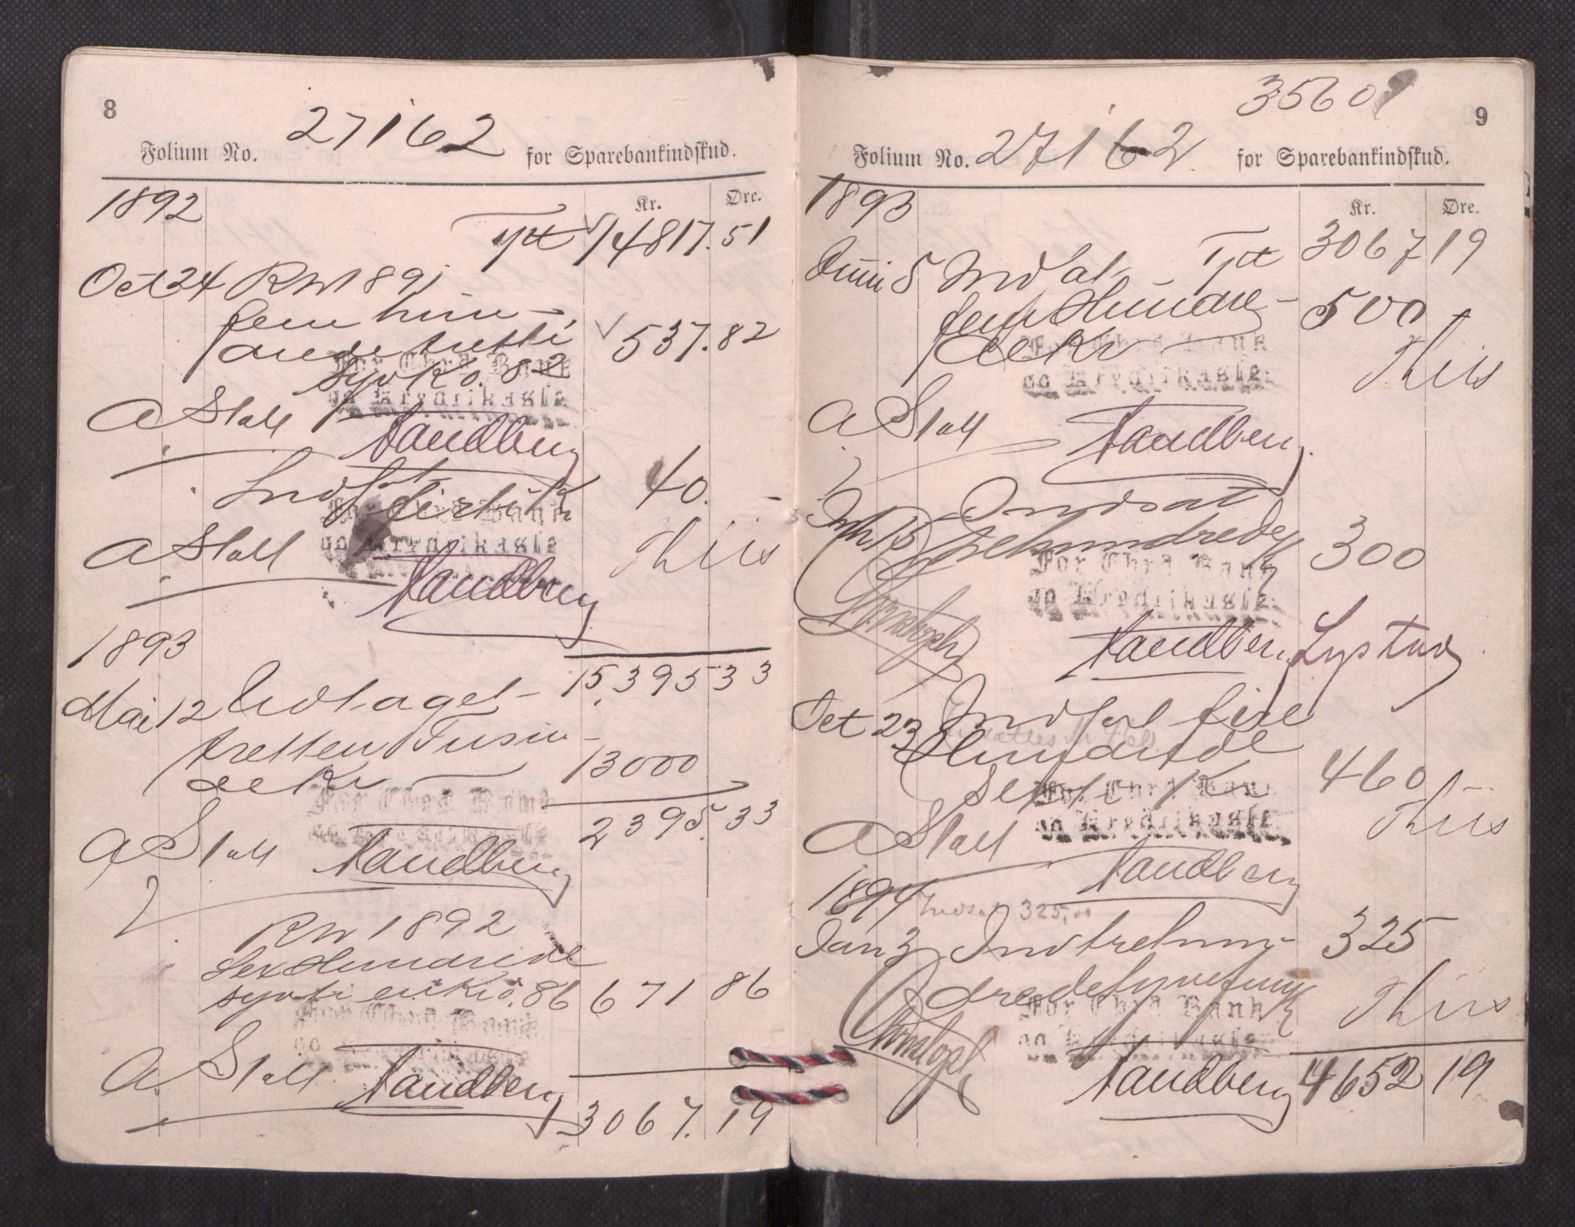 8
27162
Folium No. for Sparebankindskud.
1892
Kr. Øre.
14817.51
Oct 24 Rtr 1891
fem hun-
drede tretti
syv Kr. 82
537.82
For Chra Bank
og Kreditkasse
A Stall
Sandberg
Indsat
firti K
40.-
For Chra Bank
og Kreditkasse
Thiis
A Stall
Sandberg
1893
15,395 33
Mai 12 Udtaget
tretten Tusin-
de Kr
13000
For Chra Bank
og Kreditkasse
2395.33
A Stall
Sandberg
Rtr 1892
Sex Hundrede
sytti en Kr. 86
671 86
For Chra Bank
og Kreditkasse
A. Stall
Sandberg
3067.19
35601
9
Folium No. 27162 for Sparebankindskud.
1893
Kr. Øre.
3067 19
Juni 5 Indsat
fem Hundre-
de Kr
500
For Chra Bank
og Kreditkasse
Thiis
A Stall
Sandberg
Indsat
15
300
For Chra Bank
og Kreditkasse
Sandberg
Oct 23 Indsat fire
Hundrede
Sexti K
460
For Chra Bank
og Kreditkasse
Thiis
A Stall
Sandberg
1894
Indsat 325,00
Jan 3 Indtrehun-
dredetyvefem K
325
For Chra Bank
og Kreditkasse
Thiis
Sandberg
4652 19